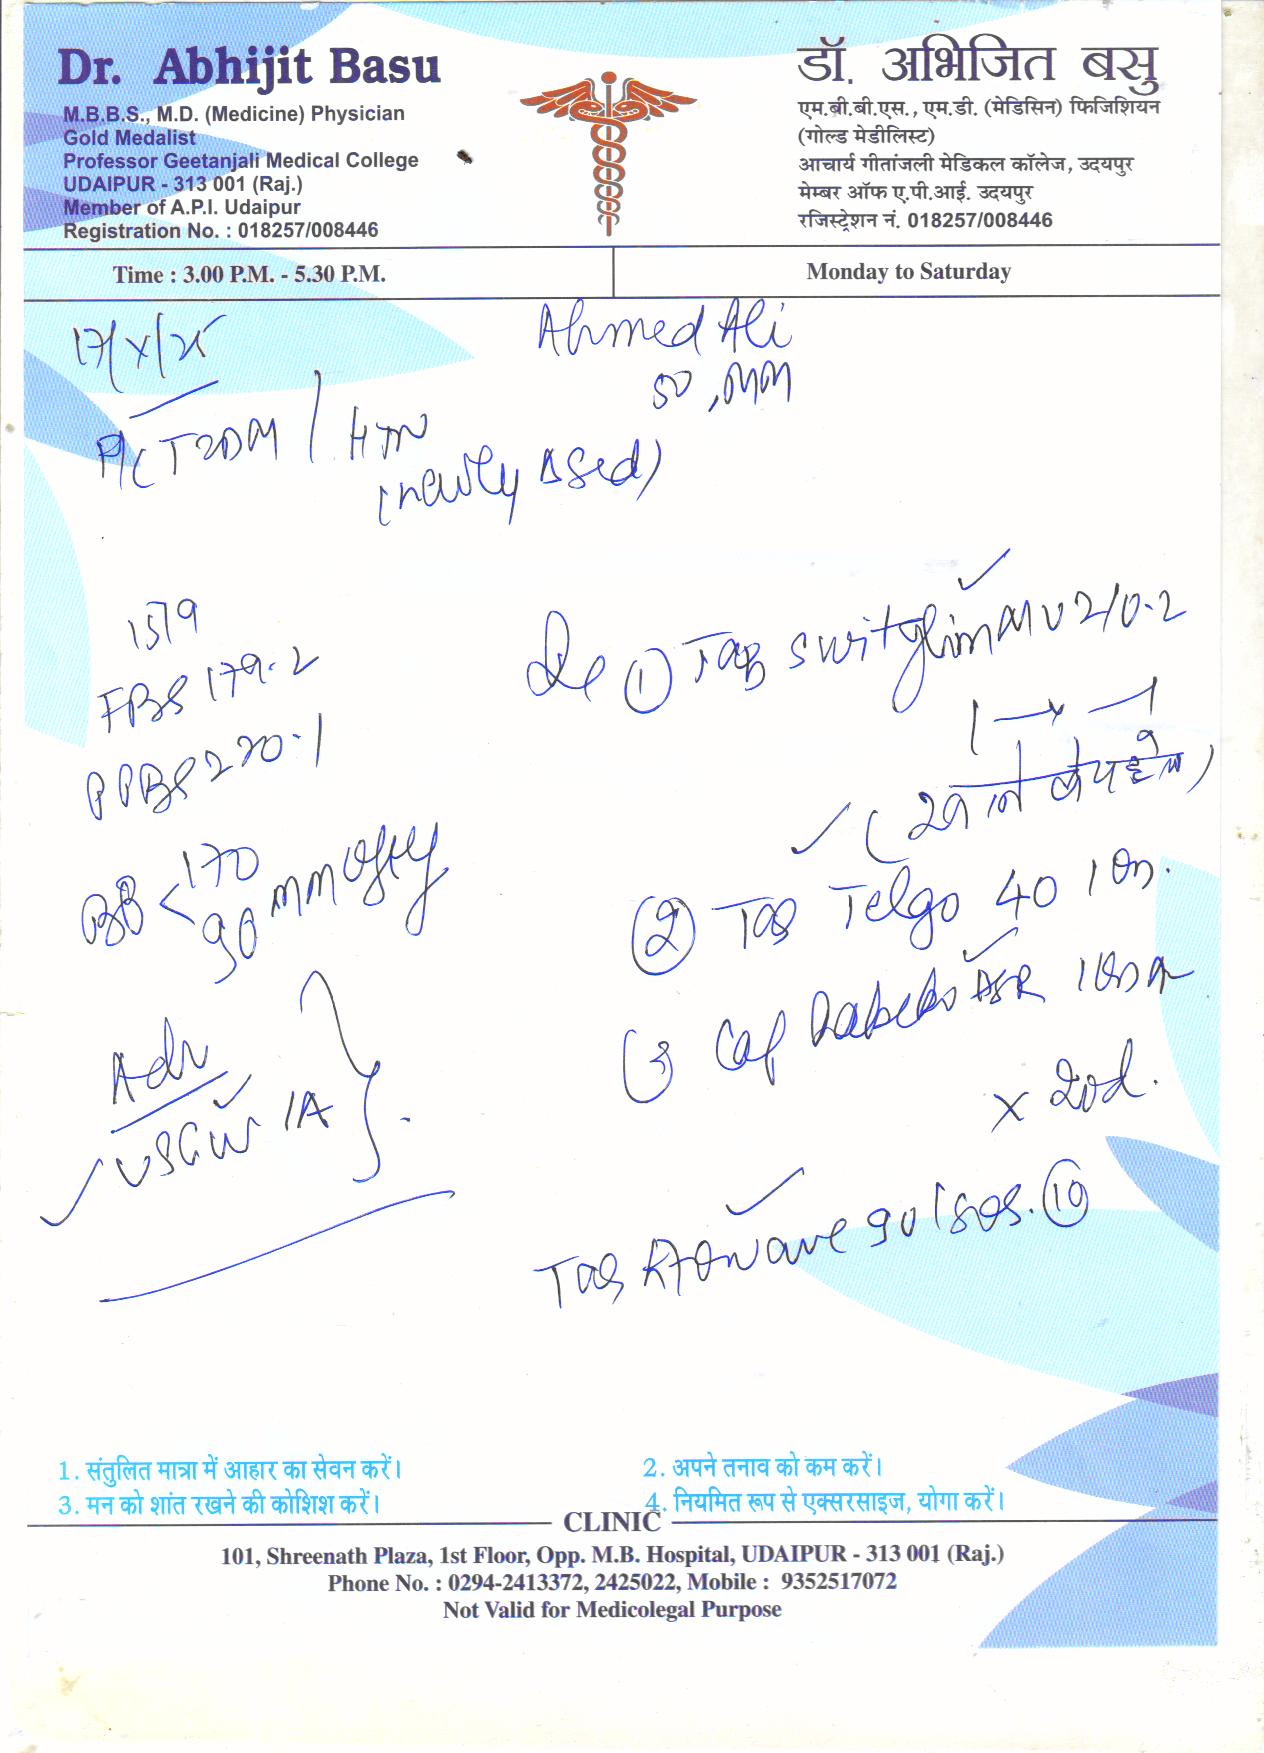 Dr. Abhijit Basu
M.B.B.S., M.D. (Medicine) Physician
Gold Medalist
Professor Geetanjali Medical College
UDAIPUR - 313 001 (Raj.)
Member of A.P.I. Udaipur
Registration No. : 018257/008446
डॉ. अभिजित बसु
एम.बी.बी.एस., एम.डी. (मेडिसिन) फिजिशियन
(गोल्ड मेडीलिस्ट)
आचार्य गीतांजली मेडिकल कॉलेज, उदयपुर
मेम्बर ऑफ ए.पी.आई. उदयपुर
रजिस्ट्रेशन नं. 018257/008446
Time : 3.00 P.M. - 5.30 P.M.
Monday to Saturday
Ahmed Ali
T2DM / HTN
(newly
15/9
FBS 179.2
PPBS 220.1
170
90
Adv
① Tab MV 2/0.2
(खाने के पहले)
(2) Tab 40
(3 Cap
x 20d.
Tab 90 ⑩
1. संतुलित मात्रा में आहार का सेवन करें।
2. अपने तनाव को कम करें।
3. मन को शांत रखने की कोशिश करें।
4. नियमित रूप से एक्सरसाइज, योगा करें।
CLINIC
101, Shreenath Plaza, 1st Floor, Opp. M.B. Hospital, UDAIPUR - 313 001 (Raj.)
Phone No. : 0294-2413372, 2425022, Mobile : 9352517072
Not Valid for Medicolegal Purpose